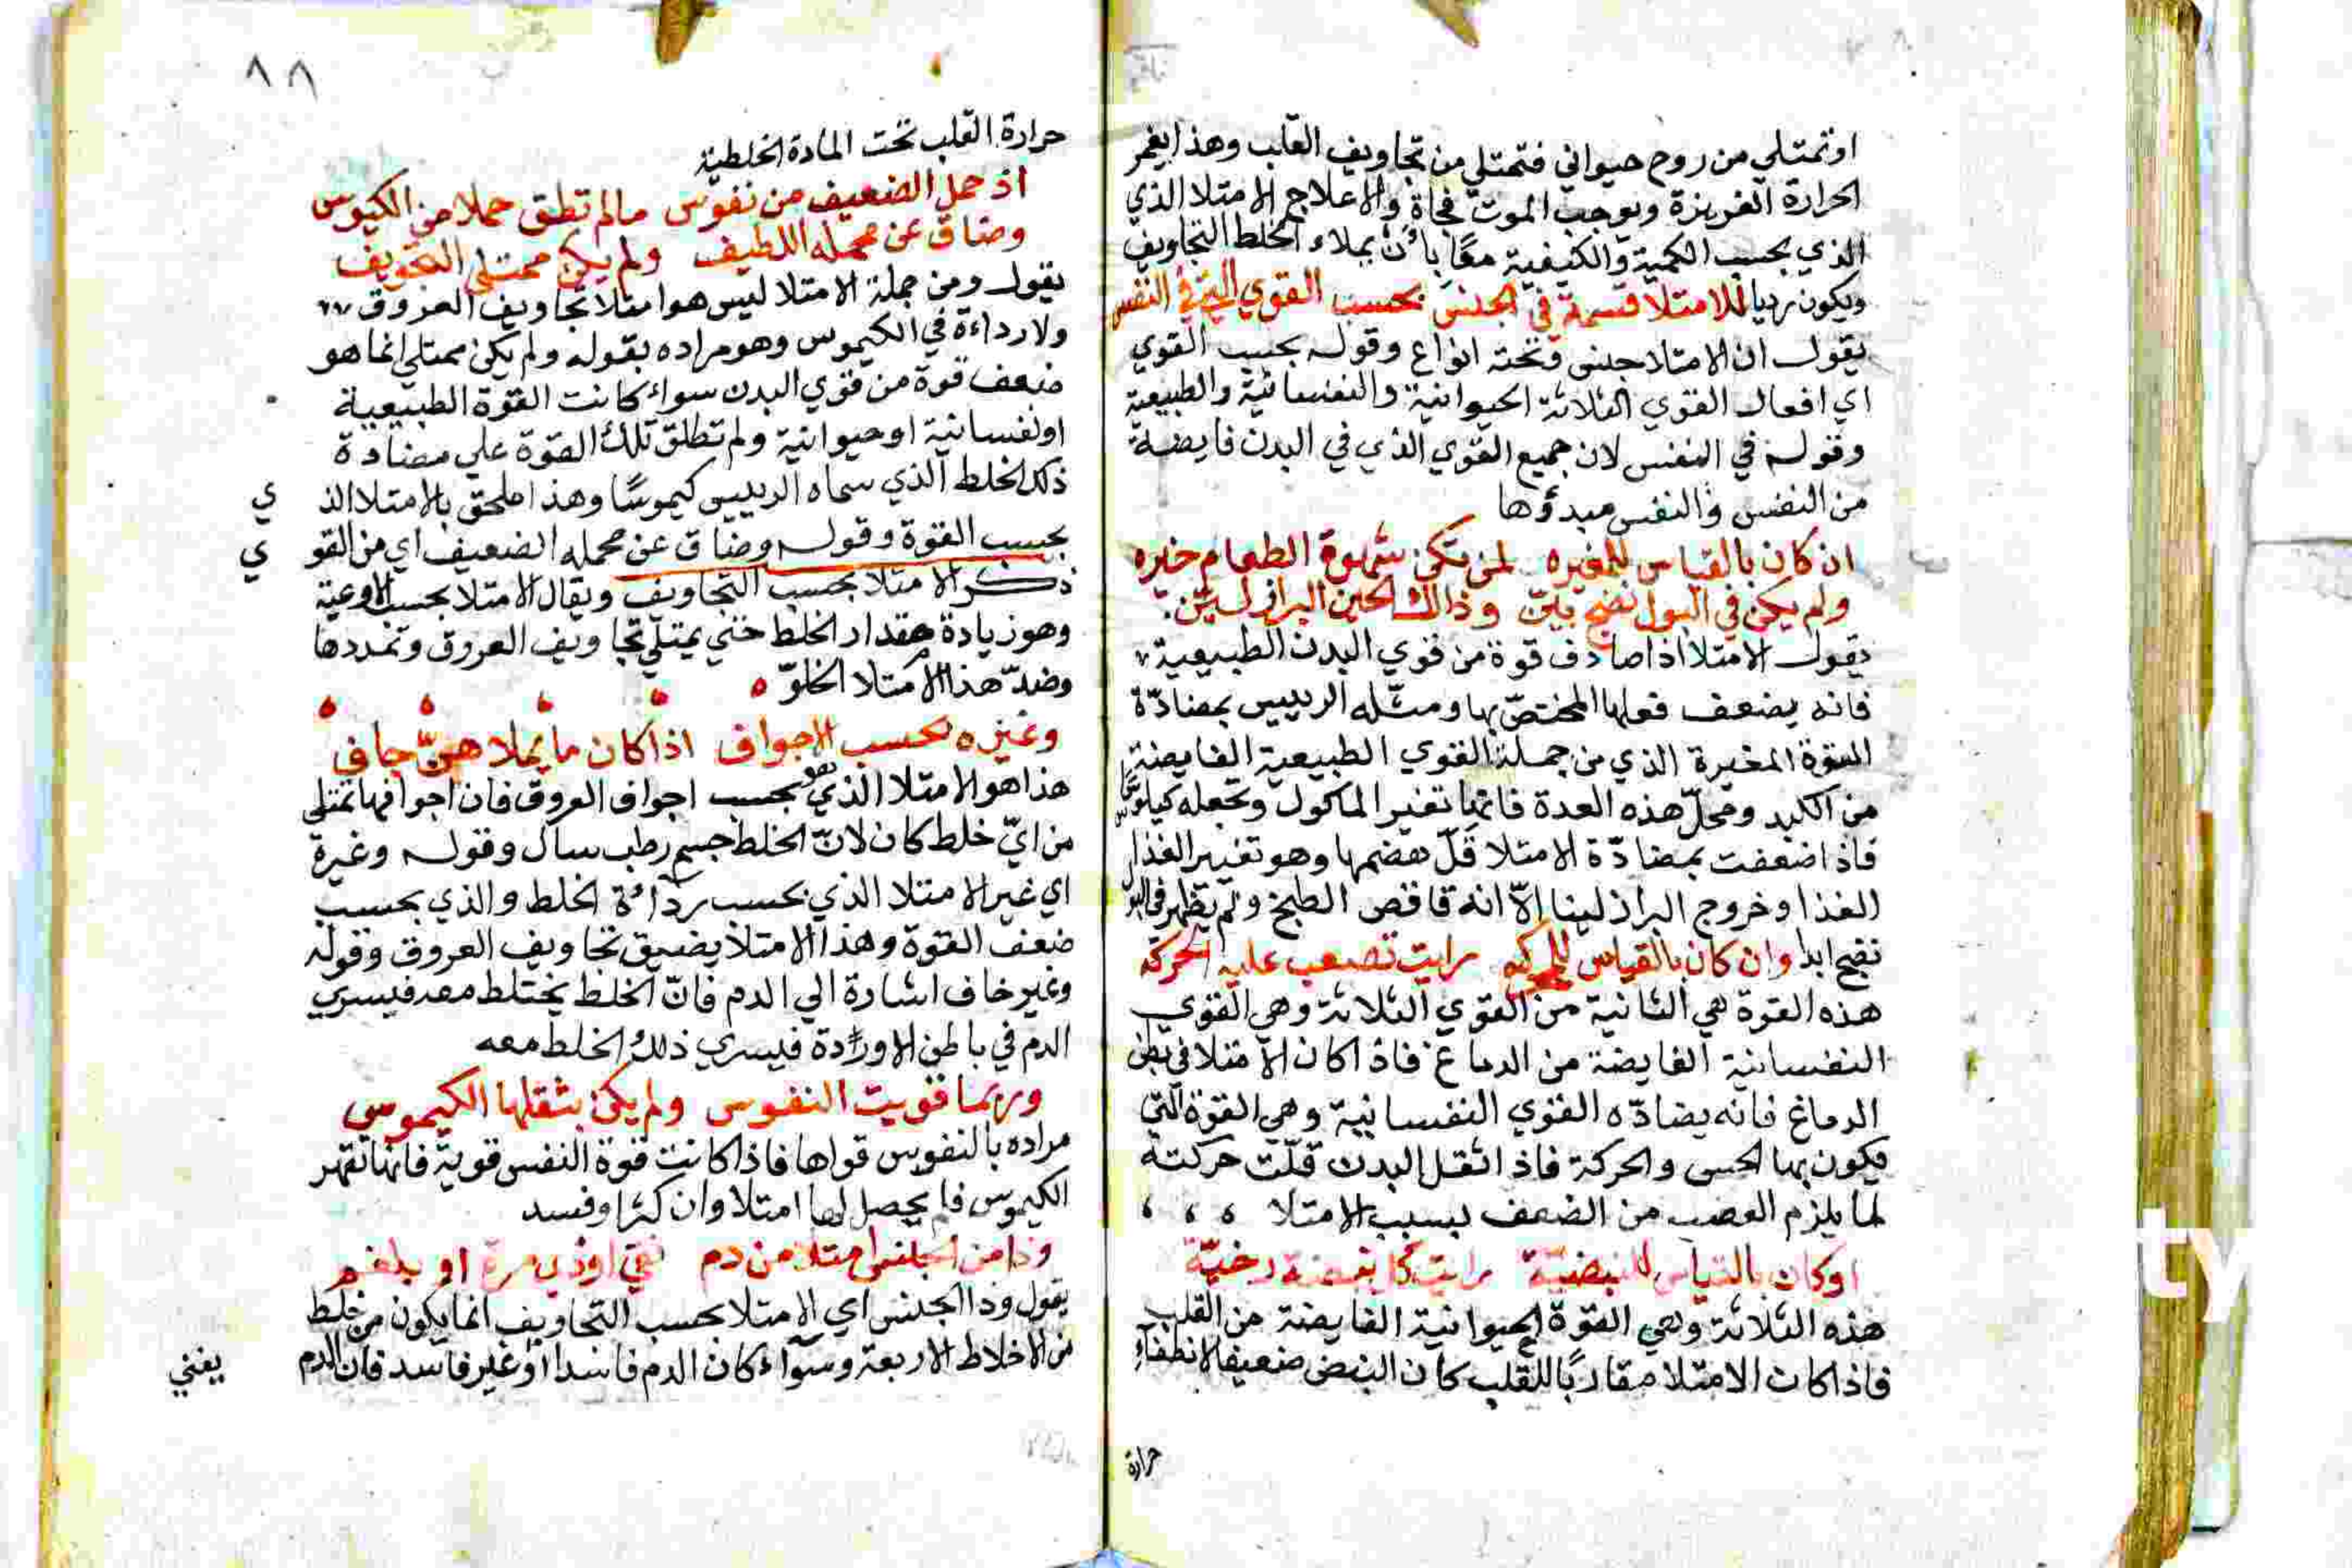 اوتمتلي من روح حيواني فتمتلي من تجاويف القلب وهذا يغمر
الحرارة الغريزة ويوجب الموت فجاة والاعلاج الامتلا الذي
الذي بحسب الكمية والكيفية معًا بأن يملاء الخلط التجاويف
ويكون رديا للامتلا قسمة في الجنس بحسب القوي التي في النفس
يقول ان الامتلا جنس وتحته انواع وقوله بحسب القوي
اي افعال القوي الثلاثة الحيوانية والنفسانية والطبيعية
وقوله في النفس لان جميع القوي الذي في البدن فايضة
من النفس والنفس مبدؤها
ان كان بالقياس للمغيره لم تكن شهوة الطعام خيره
ولم يكن في البول نضج بين وذالك الحين البراز لين
يقول الامتلا اذا صادف قوة من قوي البدن الطبيعية
فانه يضعف فعلها المختصّ بها ومثّله الرييس بمضادّة
القوة المغيرة الذي من جملة القوي الطبيعية الفايضة
من الكبد ومحلّ هذه العدة فانها تغير الماكول وتجعله كيلوسًا
فاذا ضعفت بمضادّة الامتلا قلّ هضمها وهو تغيير الغذا
الغذا وخروج البراز لينا الاّ انه قاقص الطبخ ولم يظهر في البول
نضج ابدا وان كان بالقياس للمحركه رايت تصعب عليه الحركة
هذه القوة هي الثانية من القوي الثلاثة وهي القوي
النفسانية الفايضة من الدماغ فاذا كان الامتلا في بطن
الدماغ فانه يضادّه القوي النفسانية وهي القوة التي
فيكون بها الحس والحركة فاذا اثقل البدن قلّت حركته
لما يلزم العصب من الضعف بسبب الامتلا
اوكان بالقياس للنبضيّة رايت نبضه رخيّة
هذه الثلاثة وهي القوّة الحيوانية الفايضة من القلب
فاذا كان الامتلا مقاربًا للقلب كان النبض ضعيفا لانطفاء
حرارة
٨٨
حرارة القلب تحت المادة الخلطية
اذ حمل الضعيف من نفوس مالم تطق حملا من الكيوس
وضاق عن محمله اللطيف ولم يكن ممتلي التجويف
يقول ومن جملة الامتلا ليس هو امتلا تجاويف العروق
ولا رداءة في الكيموس وهو مراده بقوله ولم يكن ممتلي انما هو
ضعف قوة من قوي البدن سواء كانت القوة الطبيعية
اونفسانية اوحيوانية ولم تطلق تلك القوة علي مضادة
ذلك الخلط الذي سماه الرييس كيموسًا وهذا ملحق بالامتلا الذ ي
بحسب القوة وقوله وضاق عن محمله الضعيف اي من القو ي
ذكر الامتلا بحسب التجاويف ويقال الامتلا بحسب الاوعية
وهو زيادة مقدار الخلط حتي يمتلي تجاويف العروق وتمددها
وضدّ هذا الامتلا الخلوّ
وغيره بحسب الاجواف اذا كان ما يملا هنّ جافي
هذا هو الامتلا الذي هو بحسب اجواف العروق فان اجوافها تمتلي
من ايّ خلط كان لانّ الخلط جسم رطب سال وقوله وغيرة
اي غير الامتلا الذي بحسب ردائة الخلط والذي بحسب
ضعف القوة وهذا الامتلا يضيق تجاويف العروق وقوله
وغير خاف اشارة الي الدم فانّ الخلط يختلط معه فيسري
الدم في باطن الاوردة فيسري ذلك الخلط معه
وربما قويت النفوس ولم يكن بثقلها الكيموس
مراده بالنفوس قواها فاذا كانت قوة النفس قوية فانها تقهر
الكيموس فلم يحصل لها امتلا وان كثرا وفسد
وذا من الجنس امتلا من دم نقي اوذي مرة او بلغم
يقول وذا الجنس اي الامتلا بحسب التجاويف انما يكون من خلط
من الاخلاط الاربعة وسوآء كان الدم فاسدا اوغير فاسد فان الدم
يغني